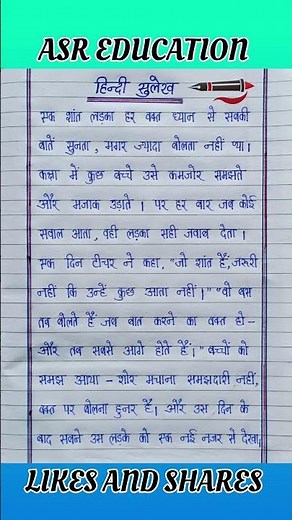 ASR EDUCATION
हिन्दी सुलेख
एक शांत लड़का हर वक्त ध्यान से सबकी
बातें सुनता, मगर ज्यादा बोलता नहीं था।
कक्षा में कुछ बच्चे उसे कमजोर समझते
और मजाक उड़ाते। पर हर बार जब कोई
सवाल आता, वही लड़का सही जवाब देता।
एक दिन टीचर ने कहा, "जो शांत हैं, जरूरी
नहीं कि उन्हें कुछ आता नहीं।" "वो बस
तब बोलते हैं जब बात करने का वक्त हो-
और तब सबसे आगे होते हैं।" बच्चों को
समझ आया - शोर मचाना समझदारी नहीं,
वक्त पर बोलना हुनर है। और उस दिन के
बाद सबने उस लडके को एक नई नजर से देखा।
LIKES AND SHARES